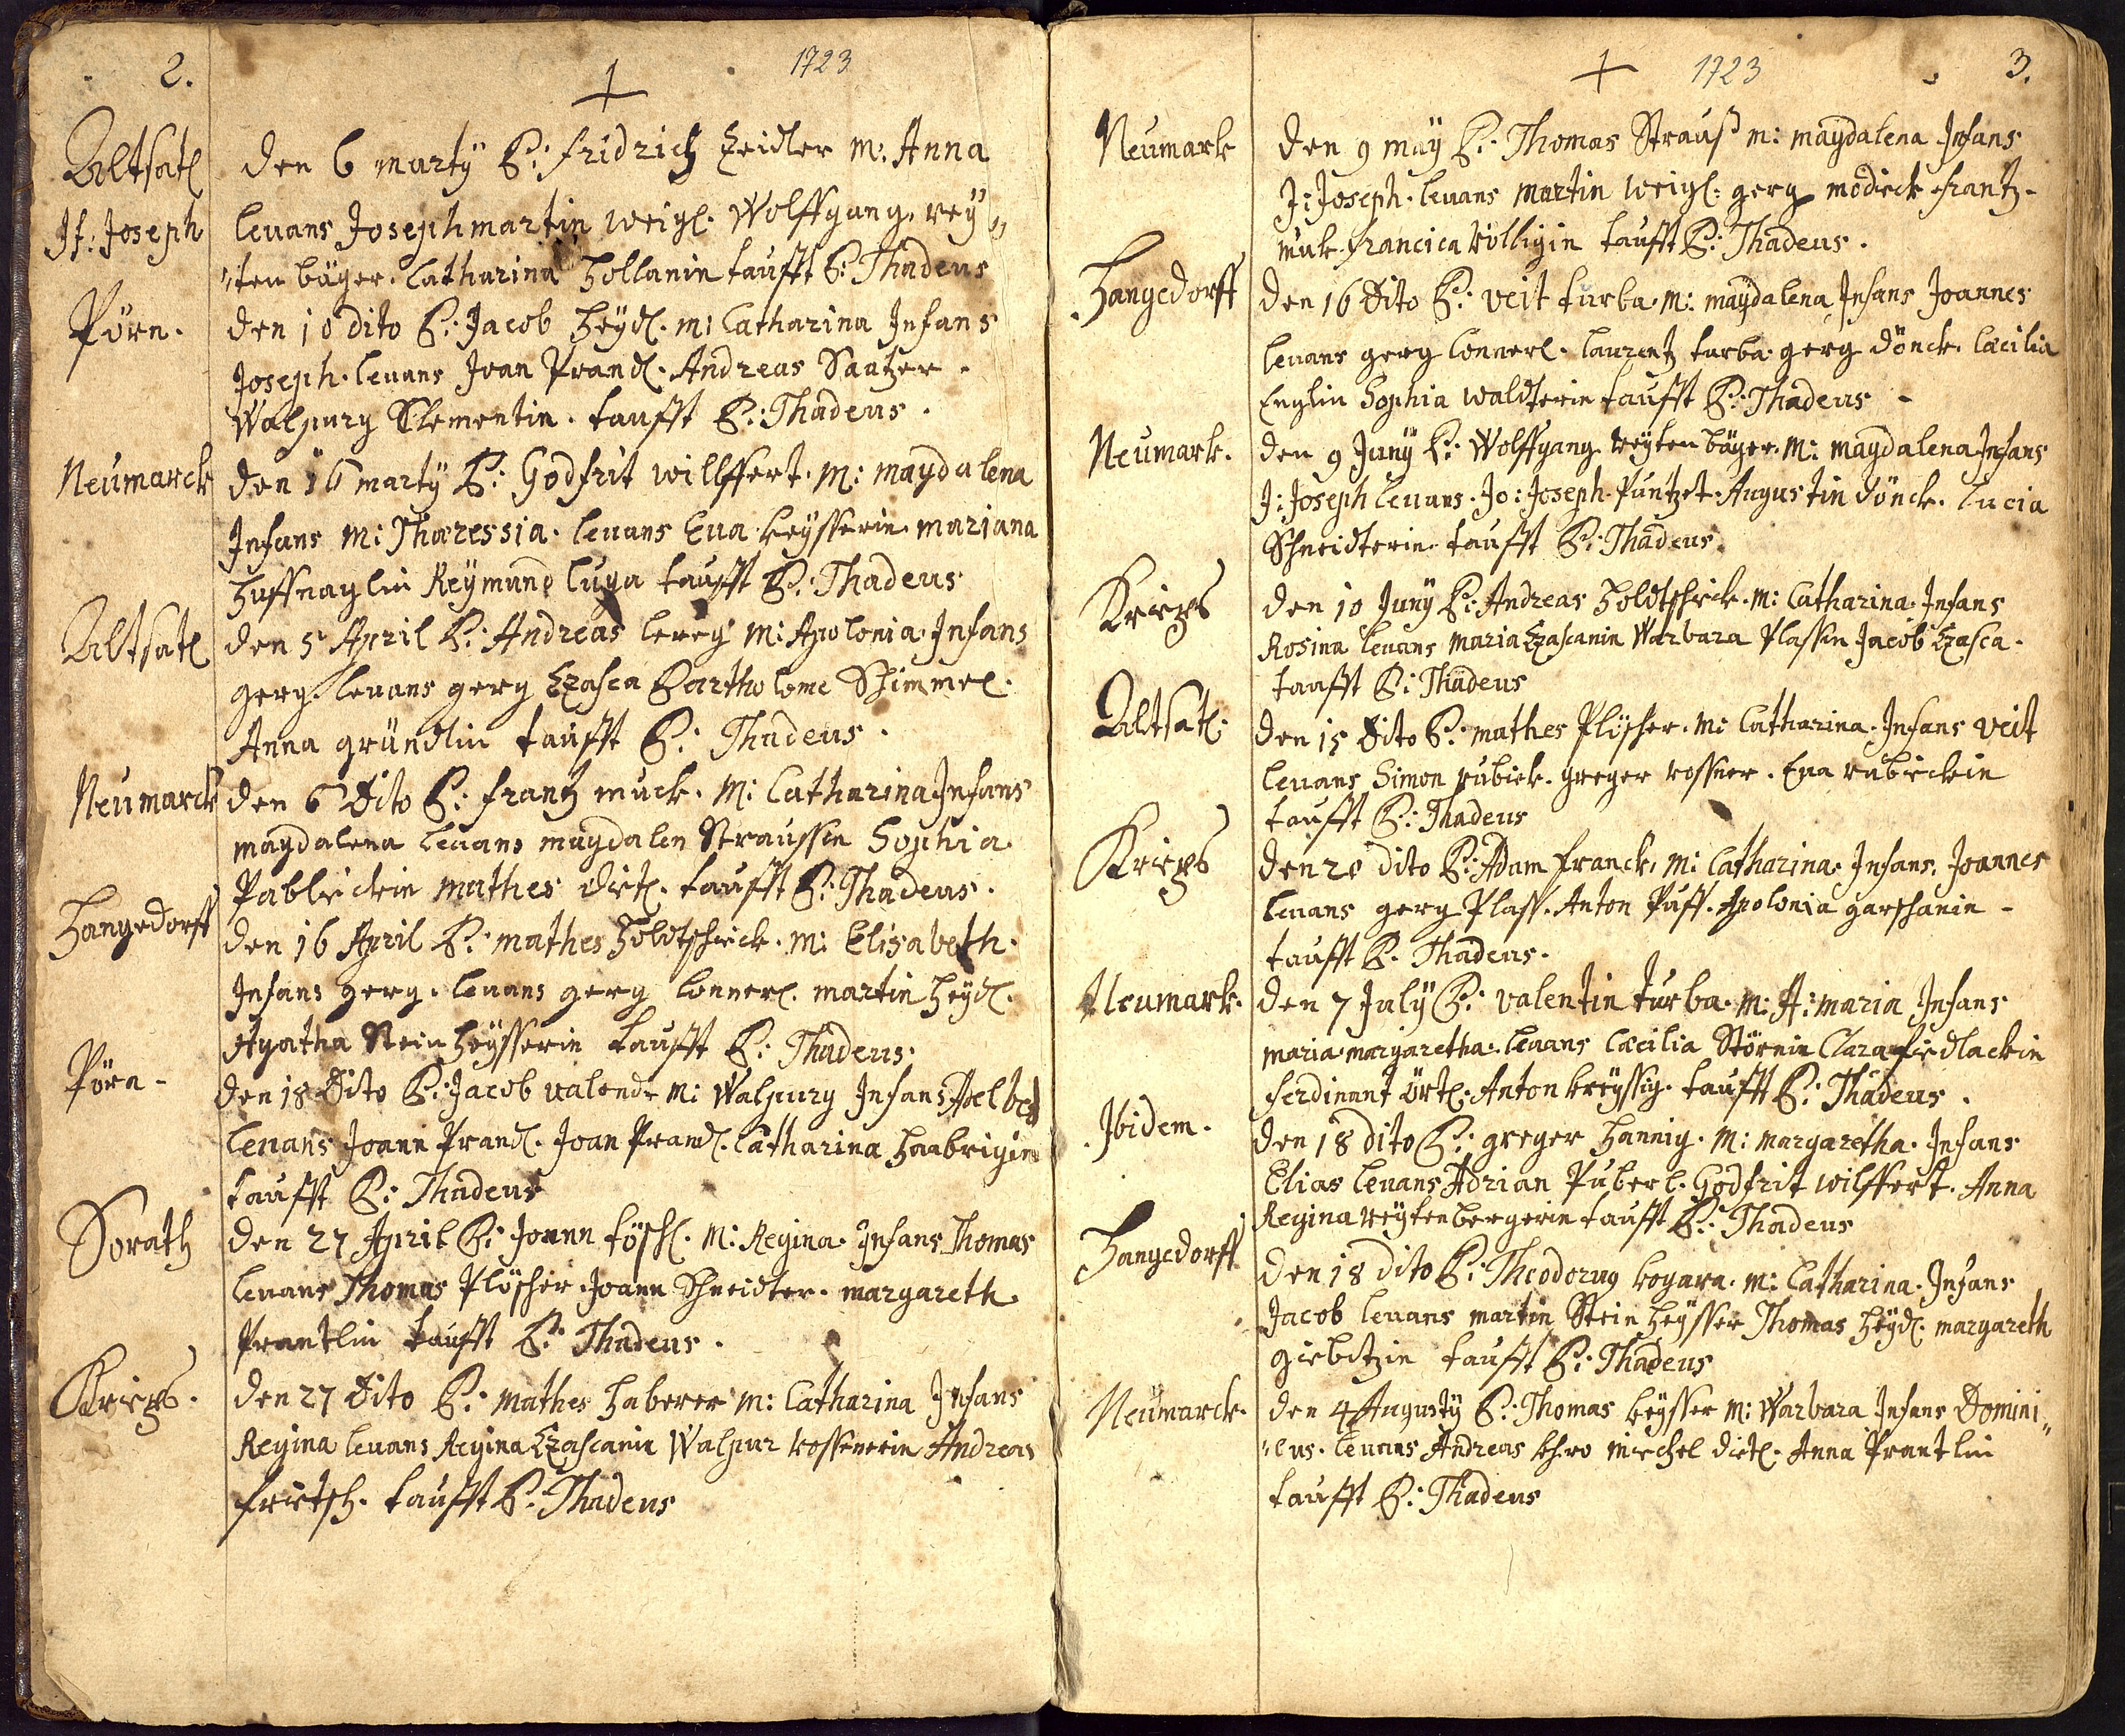 2.
1723
Altsatl
Jf: Joseph
den 6 marty P: fridrich Zeidler m: Anna
levans Joseph martin weigl. Wolffgang. rey„
„ten bäger. Catharina Hollanin taufft P: Thadeus
Pörn.
den 10 dito P: Jacob Heydl. m: Catharina Infans
Joseph. levans Joan Prandl. Andreas Saatzer.
Walpurg Klementin. taufft P: Thadeus.
Neumarck
den 16 marty P: Godfrit willffert. M: magdalena
Infans M: Thæressia. levans Eva keysserin. mariana
Huffnaglin Reymund luga taufft P: Thadeus
Altsatl
den 5 April P: Andreas lereg M: Apolonia. Infans
gerg levans gerg Czasca Bartholome Schimmel.
Anna gründlin taufft P: Thadeus.
Neumarck
den 6 Dito P: frantz muck. M: Catharina Infans
magdalena levans magdalen Straussin Sophia
Pablickin mathes dietl. taufft P: Thadeus.
Hangedorff
den 16 April P: mathes Holdtschick. m: Elisabeth.
Infans gerg. levans gerg lonnerl. martin Heydl.
Agatha Steinheysserin taufft P: Thadeus
Pörn-
den 18 Dito P: Jacob valend. M: Walpurg Infans
levans Joann Prandl. Joan Prandl. Catharina Haabrigin
taufft P: Thadeus
Dorath
den 27 April P: Joann töschl. M: Regina. Infans Thomas
levans Thomas Plöscher. Joann Schneidter. margareth
Prantlin taufft P: Thadeus.
Krieps.
den 27 Dito P: mathes Haberer M: Catharina Infans
Regina levans Regina Czascanin Walpur kossenerin Andreas
frietsch. taufft P: Thadeus
1723
3.
Neumark
den 9 may P: Thomas Strauß m: magdalena Infans
J: Joseph. levans martin weigl. gerg modieck frantz-
muk. francica Völligin taufft P: Thadeus.
Hangedorff
den 16 Dito P: veit turba. M: magdalena Infans Joannes
levans gerg lonnerl. laurentz turba. gerg dönck. Cæcilia
Englin Sophia waldterin taufft P: Thadeus-
Neumark.
den 9 Juny P: Wolffgang reyten bäger. M: magdalena Infans
J: Joseph levans. Jo: Joseph. Puntzet. Augustin dönck. lucia
Schneidterin taufft P: Thadeus.
Krieps
den 10 Juny P: Andreas Holdtschick. M: Catharina. Infans
Rosina levans maria Czascanin Warbara Plassin Jacob Czasca.
taufft P: Thadeus
Altsatl.
den 15 Dito P: mathes Plöscher. M: Catharina. Infans veit
levans Simon rubiek. greger rossner. Eva rubickin
taufft P: Thadeus
Krieps
den 20 dito P: Adam franck. M: Catharina. Infans. Joannes
levans gerg Plass. Anton Puff. Apolonia garschanin-
taufft P. Thadeus.
Neumark.
den 7 July P: valentin turba. M: A: maria Infans
maria margaretha. levans Cæcilia Störnin Clara fiedlackin
ferdinant örtl. Anton kreyssig. taufft P: Thadeus.
Ibidem.
den 18 dito P: greger Hannig. M: margaretha. Infans
Elias levans Adrian Puberl. Godfrit wilffert. Anna
Regina reytenbergerin taufft P: Thadeus
Hangedorff
den 18 dito P: Theodorus kogara. m: Catharina. Infans
Jacob levans martin Steinheysser Thomas Heydl. margareth
giebitzin taufft P: Thadeus
Neumarck.
den 4 Augusty P: Thomas keysser M: Warbara Infans Domini„
„cus. levans Andreas michel dietl. Anna Prantlin
taufft P: Thadeus